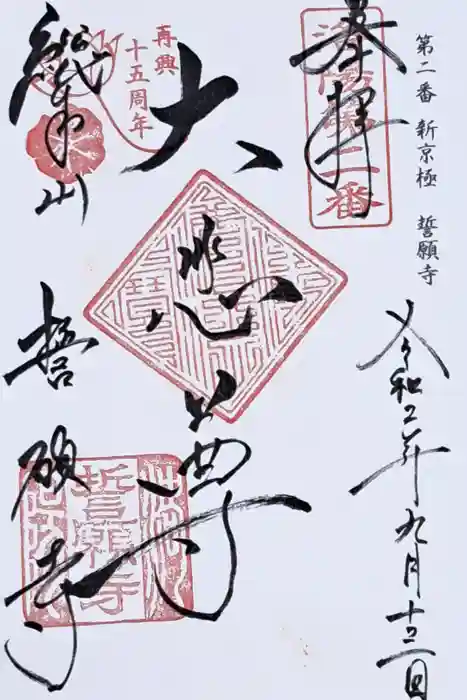 第二番 新京極 誓願寺
奉拝
洛陽第二番
令和二年九月十三日
大悲尊
再興
十五周年
総本山
誓願寺
誓願寺